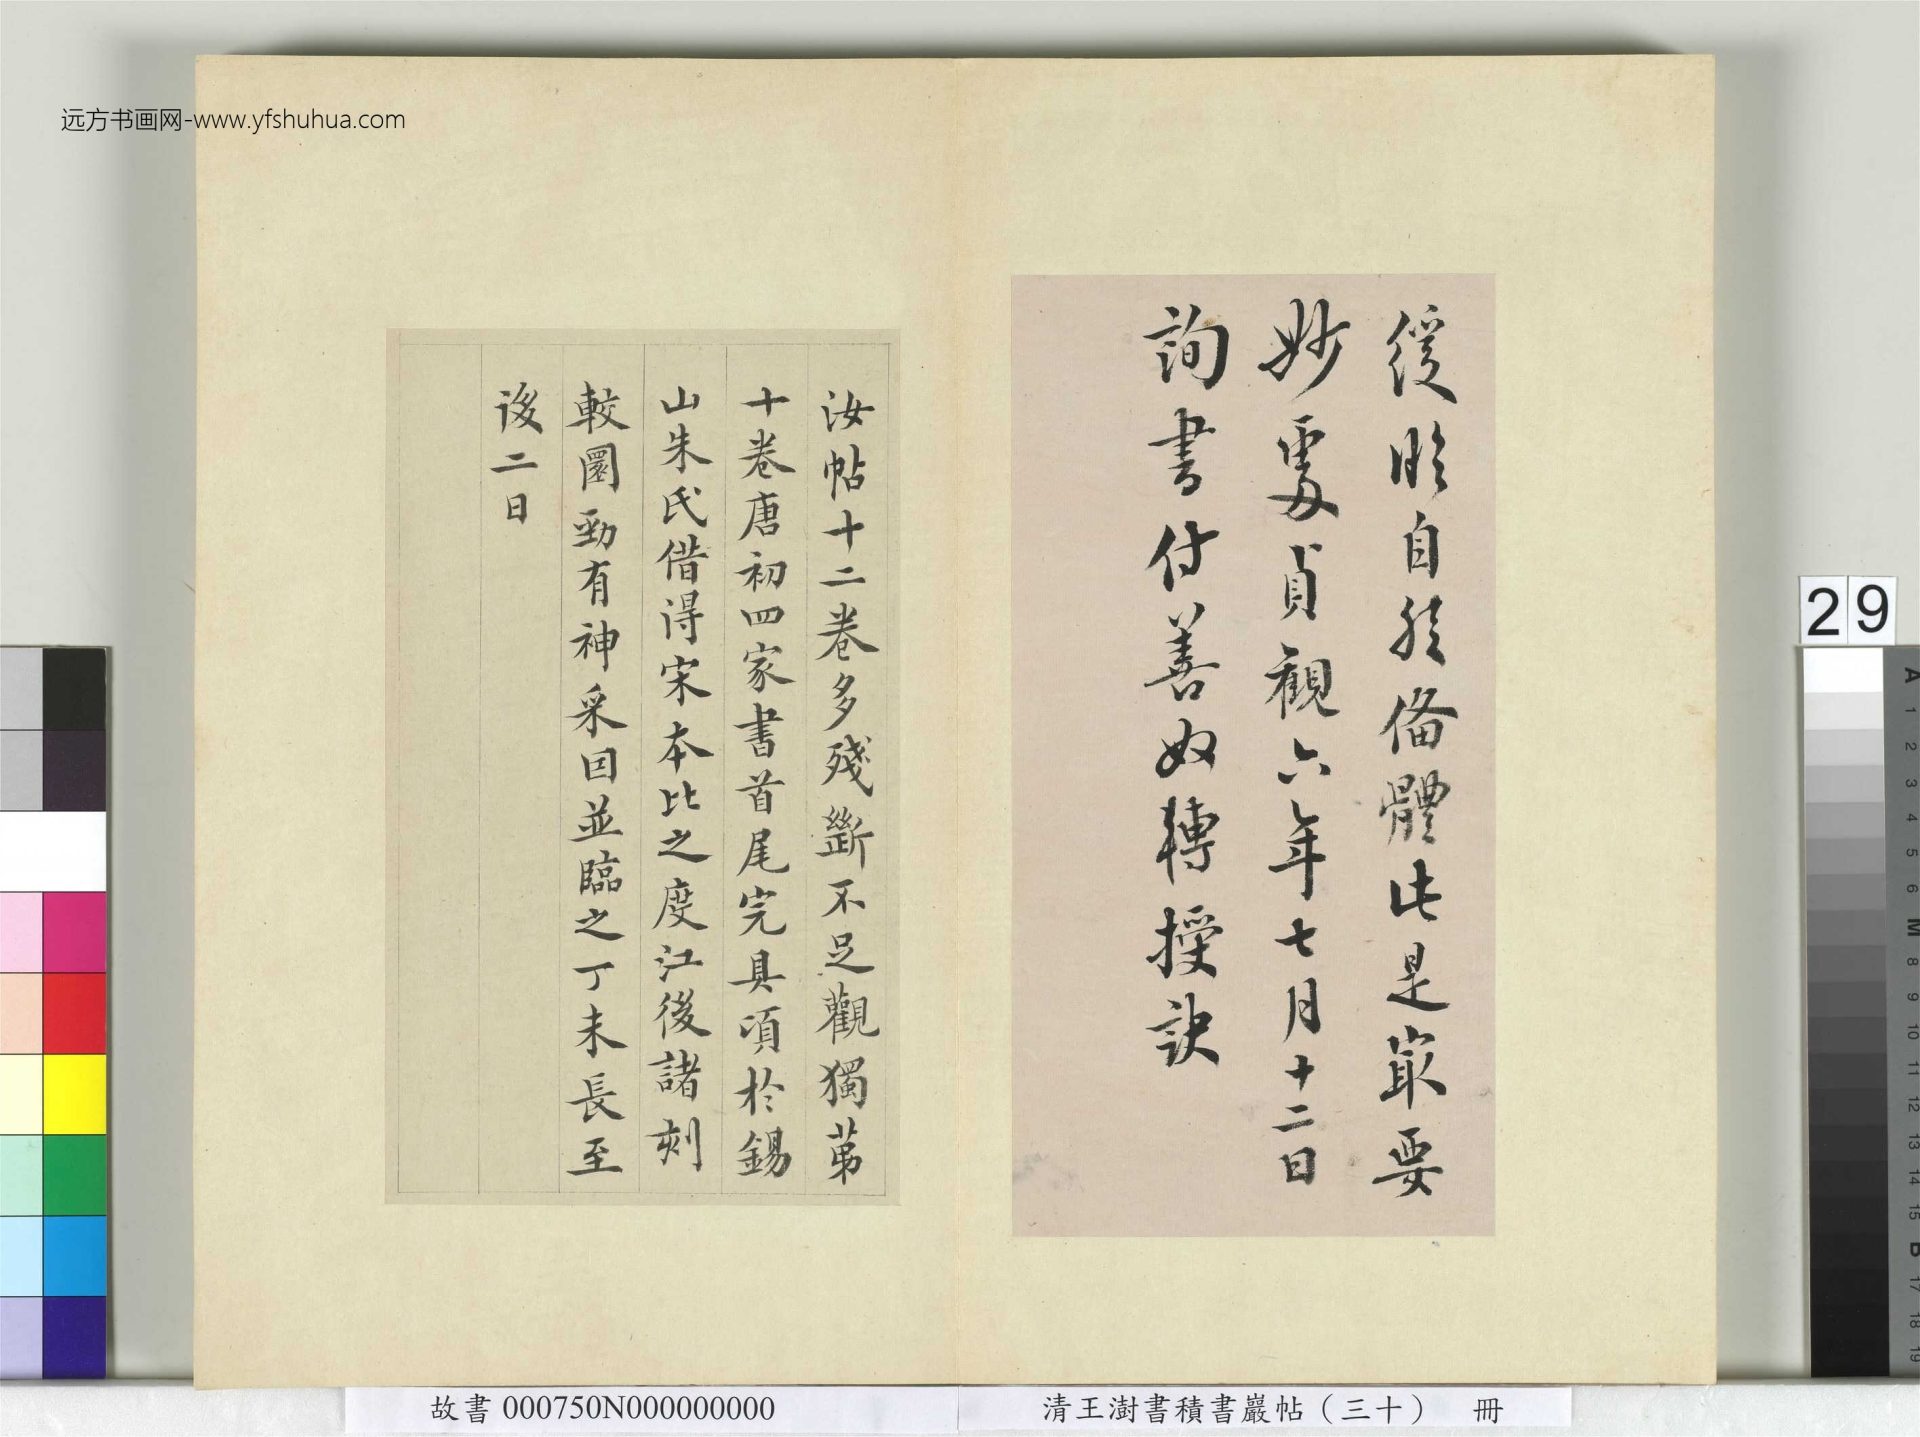 远方书画网-www.yfshuhua.com
緩臨自然備體此是冣要
妙處貞觀六年七月十二日
詢書付善奴轉授訣
汝帖十二卷多殘斷不足觀獨苐
十卷唐初四家書首尾完具項於錫
山朱氏借得宋本比之度江後諸刻
較圜勁有神采因並臨之丁未長至
後二日
29
故書 000750N000000000
清王澍書積書巖帖（三十） 冊
A 1 2 3 4 5 6 M 8 9 10 11 12 13 14 15 B 17 18 19